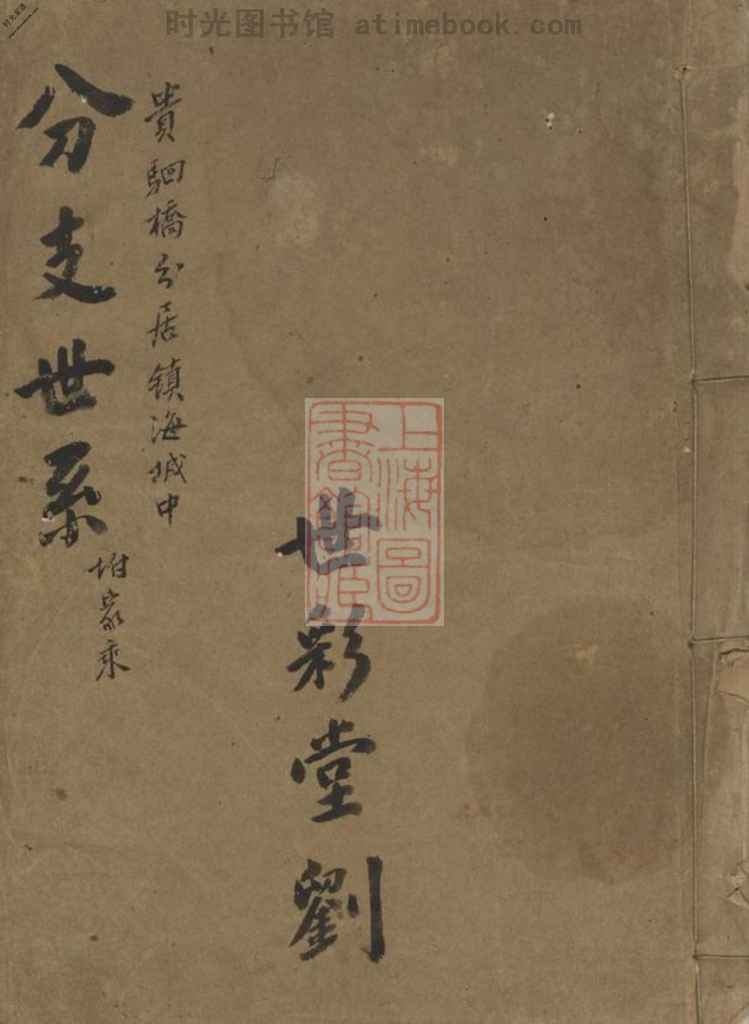 时光图书馆 atimebook.com
世彩堂劉
貴駟橋分居鎮海城中
分支世系
附家乘
上海圖書館藏